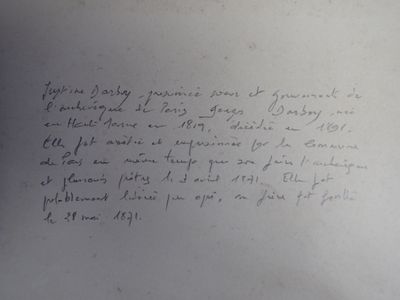 Justine Darboy, présumée soeur et gouvernante de
l'archevêque de Paris Georges Darboy, née
en Haute Marne en 1819, décédée en 1891.
Elle fut arrêtée et emprisonnée par la Commune
de Paris en même temps que son frère l'archevêque
et plusieurs prêtres le 3 avril 1871. Elle fut
probablement libérée peu après, son frère fut fusillé
le 28 mai 1871.